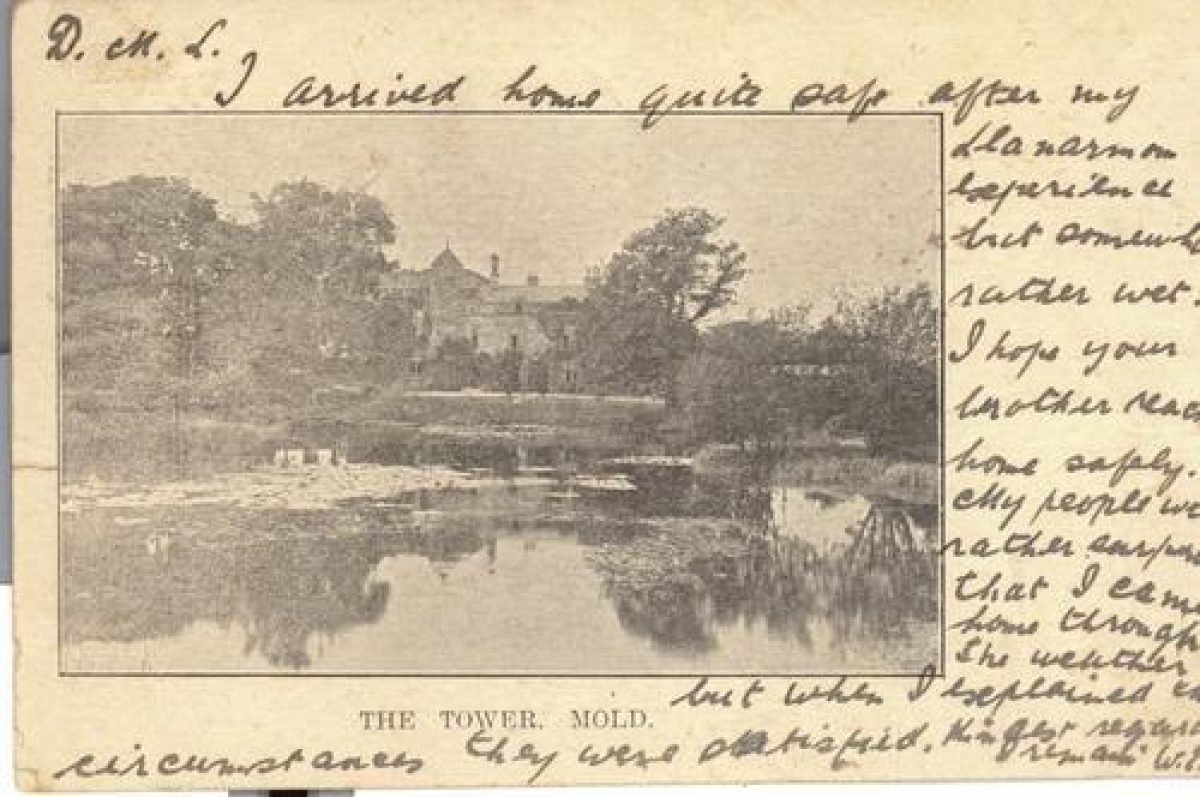 D. M. L.
I arrived home quite safe after my
Llanarmon
experience
but somewh
rather wet.
I hope your
brother reac
home safely.
My people we
rather surpri
that I came
home through
the weather
but when I explained
THE TOWER. MOLD.
circumstances they were satisfied. Kindest regar
I remain W.